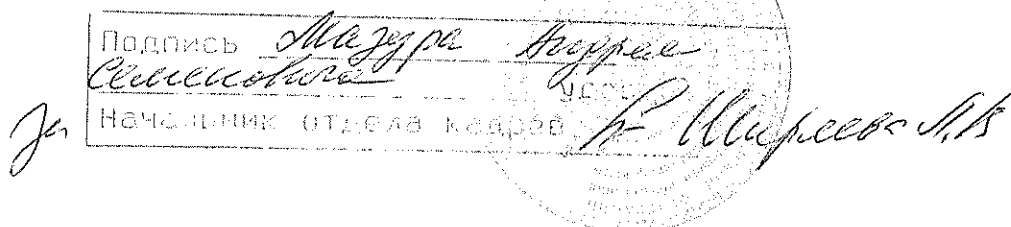 Подпись Мазура Андрея
Семеновича
За Начальник отдела кадров Ширеева Л.В